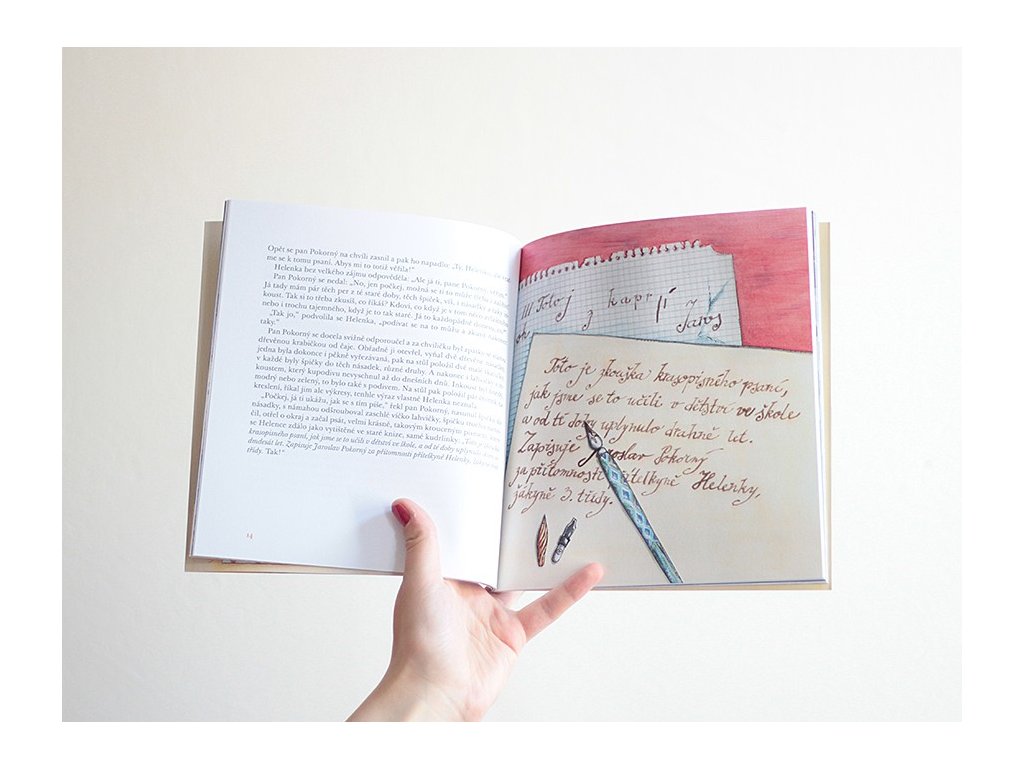 Opět se pan Pokorný na chvíli zasnil a pak ho napadlo: „Té, Helenko,
me se k tomu psaní. Abys mi to totiž věřila!“
Helenka bez velkého zájmu odpověděla: „Ale já ti, pane Pokorný, věřím.“
Pan Pokorný se nedal: „No, jen počkej, možná se ti to může
Já tady mám pár těch per z té staré doby, těch špiček, víš, i násadku a
koust. Tak si to třeba zkusíš, co říkáš? Kdoví, co když je v tom něco
nebo i trochu tajemného, když je to tak staré. Já to každopádně
„Tak jo,“ podvolila se Helenka, „podívat se na to můžu a zkusit
taky.“
Pan Pokorný se docela svižně odporoučel a za chviličku byl zpátky
dřevěnou krabičkou od čaje. Obřadně ji otevřel, vyňal dvě dřevěné
jedna byla dokonce i pěkně vyřezávaná, pak na stůl položil dvě malé
v každé byly špičky do těch násadek, různé druhy. A nakonec i lahvičku
koustem, který kupodivu nevyschnul až do dnešních dnů. Inkoust byl
modrý nebo zelený, to bylo také s podivem. Na stůl pak položil pár
kreslení, říkal jim ale výkresy, tenhle výraz vlastně Helenka neznala.
„Počkej, já ti ukážu, jak se s tím píše,“ řekl pan Pokorný, nasunul
násadky, s námahou odšrouboval zaschlé víčko lahvičky, špičku
čil, otřel o okraj a začal psát, velmi krásně, takovým krouceným písmem,
se Helence zdálo jako vytištěné ve staré knize, samé kudrlinky. „Toto je
krasopisného psaní, jak jsme se to učili v dětství ve škole, a od té doby uplynulo
let. Zapisuje Jaroslav Pokorný za přítomnosti přítelkyně Helenky,
třídy. Tak!“
14
Toto j
k a p r j í
z
Jaros
Toto je zkouška krasopisného psaní,
jak jsme se to učili v dětství ve škole
a od té doby uplynulo drahně let.
Zapisuje Jaroslav Pokorný
za přítomnosti přítelkyně Helenky,
žákyně 3. třídy.